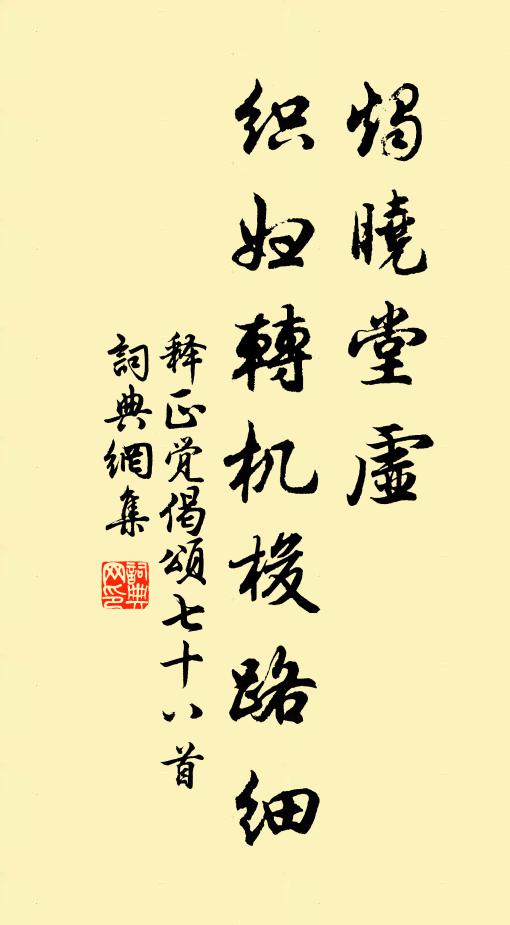 烛曉堂虛
织妇轉机梭路细
释正觉偈頌七十八首
詞典網集
詞典網印